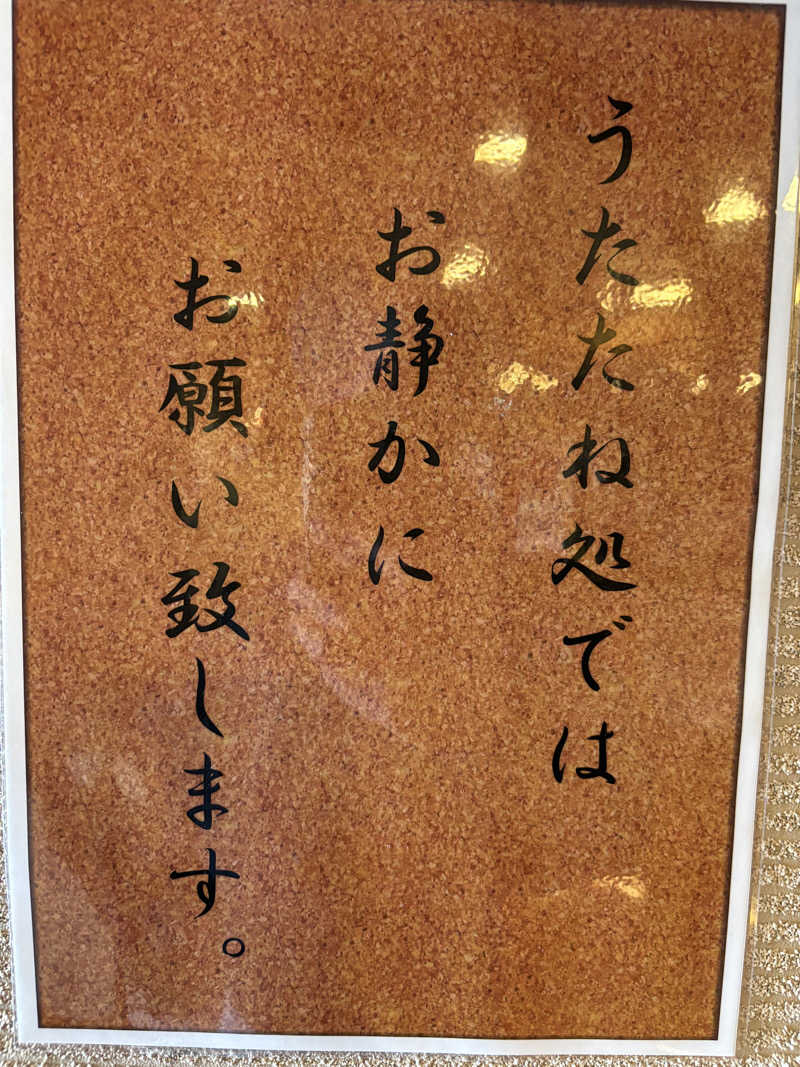 うたたね処では
お静かに
お願い致します。